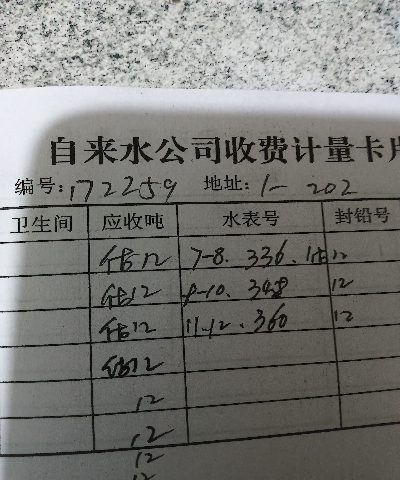 自来水公司收费计量卡片
编号: 172259 地址: 1-202
卫生间 应收吨 水表号 封铅号
估12 7-8. 336. 估12
估12 9-10. 348 12
估12 11-12. 360 12
估12
12
12
12
12